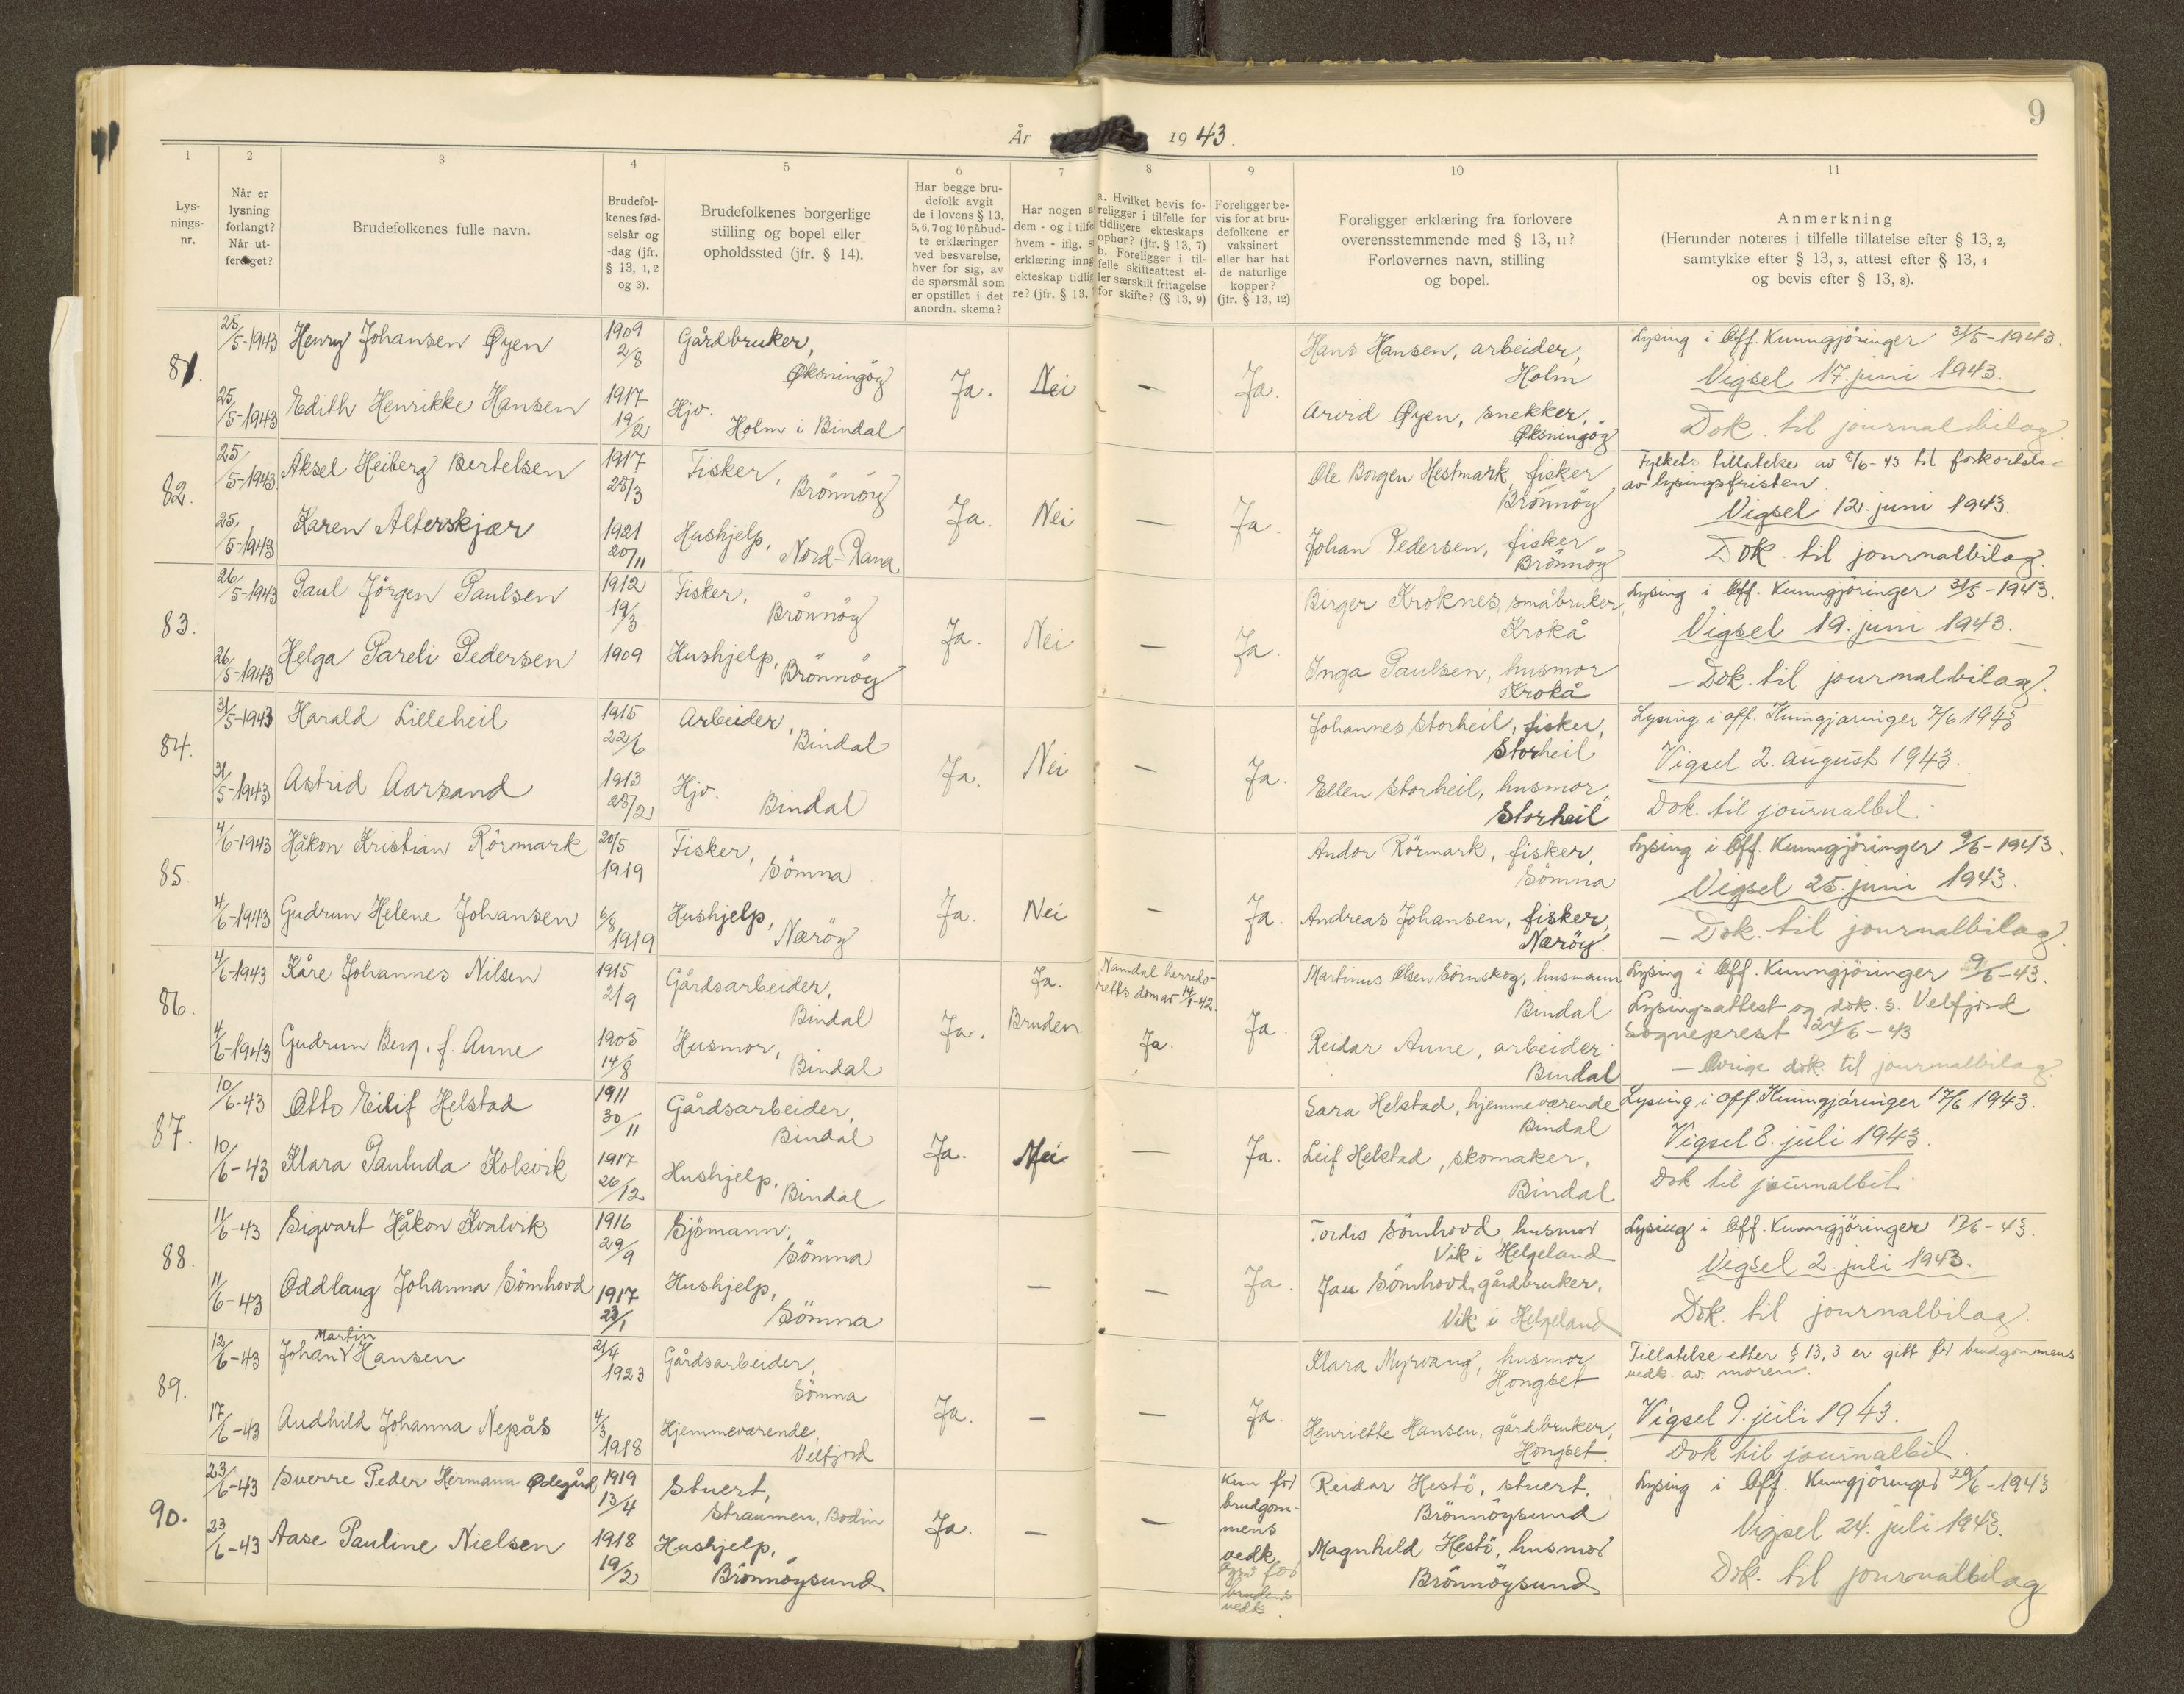 9
År 1943.
1 2 3 4 5 6 7 8 9 10 11
Lys-
nings-
nr.
Når er
lysning
forlangt?
Når ut-
ferdiget?
Brudefolkenes fulle navn.
Brudefol-
kenes fød-
selsår og
-dag (jfr.
§ 13, 1, 2
og 3).
Brudefolkenes borgerlige
stilling og bopel eller
opholdssted (jfr. § 14).
Har begge bru-
defolk avgit
de i lovens § 13,
5, 6, 7 og 10 påbud-
te erklæringer
ved besvarelse,
hver for sig, av
de spørsmål som
er opstillet i det
anordn. skema?
Har nogen a
dem - og i tilfe
hvem - iflg. s
erklæring inng
ekteskap tidlig
re? (jfr. § 13,
a. Hvilket bevis fo-
religger i tilfelle for
tidligere ekteskaps
ophør? (jfr. § 13, 7)
b. Foreligger i til-
felle skifteattest el-
ler særskilt fritagelse
for skifte? (§ 13, 9)
Foreligger be-
vis for at bru-
defolkene er
vaksinert
eller har hat
de naturlige
kopper?
(jfr. § 13, 12)
Foreligger erklæring fra forlovere
overensstemmende med § 13, 11?
Forlovernes navn, stilling
og bopel.
Anmerkning
(Herunder noteres i tilfelle tillatelse efter § 13, 2,
samtykke efter § 13, 3, attest efter § 13, 4
og bevis efter § 13, 8).
81.
25/5-1943 Henry Johansen Øyen 1909 2/8 Gårdbruker,
Øksningöy
25/5-1943 Edith Henrikke Hansen 1917 19/2 Hjv.
Holm i Bindal
Ja. Nei — Ja.
Hans Hansen, arbeider,
Holm
Arvid Øyen, snekker,
Øksningöy
Lysing i Off. Kunngjöringer 31/5-1943.
Vigsel 17. juni 1943.
Dok. til journalbilag
82.
25/5-1943 Aksel Heiberg Bertelsen 1917 28/3 Fisker,
Brönnöy
25/5-1943 Karen Alterskjær 1921 20/11 Hushjelp,
Nord-Rana
Ja. Nei — Ja.
Ole Borgen Hestmark, fisker
Brönnöy
Johan Pedersen, fisker
Brönnöy
Fylkets tillatelse av /6-43 til forkortels-
av lysingsfristen.
Vigsel 12. juni 1943.
Dok. til journalbilag.
83.
26/5-1943 Paul Jörgen Paulsen 1912 19/3 Fisker,
Brönnöy
26/5-1943 Helga Pareli Pedersen 1909 Hushjelp,
Brönnöy
Ja. Nei — Ja.
Birger Kroknes, småbruker,
Krokå
Inga Paulsen, husmor
Krokå
Lysing i Off. Kunngjöringer 31/5-1943.
Vigsel 19. juni 1943.
— Dok. til journalbilag.
84.
31/5-1943 Harald Lilleheil 1915 22/6 Arbeider,
Bindal
31/5-1943 Astrid Aarsand 1913 28/2 Hjv.
Bindal
Ja. Nei — Ja.
Johannes Storheil, fisker,
Storheil
Ellen Storheil, husmor,
Storheil
Lysing i off. Kunngjøringer 7/6 1943
Vigsel 2. august 1943.
Dok. til journalbil.
85.
4/6-1943 Håkon Kristian Rörmark 20/5 1919 Fisker,
Sömna
4/6-1943 Gudrun Helene Johansen 6/8 1919 Hushjelp,
Næröy
Ja. Nei — Ja.
Andor Rörmark, fisker,
Sömna
Andreas Johansen, fisker,
Næröy.
Lysing i Off. Kunngjöringer 9/6-1943.
Vigsel 25. juni 1943.
— Dok. til journalbilag
86.
4/6-1943 Kåre Johannes Nilsen 1915 2/9 Gårdsarbeider,
Bindal
4/6-1943 Gudrun Berg, f. Aune 1905 14/8 Husmor,
Bindal
Ja. Ja.
Bruden
Namdal herreds-
retts dom av 14/1-42.
Ja.
Ja.
Martinus Olsen Sörnskog, husmann
Bindal
Reidar Aune, arbeider
Bindal
Lysing i Off. Kunngjöringer 9/6-43.
Lysingsattest og dok. s. Velfjord
sogneprest 24/6-43
— Övrige dok. til journalbilag.
87.
10/6-43 Otto Eilif Helstad 1911 30/11 Gårdsarbeider,
Bindal
10/6-43 Klara Pauluda Kolsvik 1917 26/12 Hushjelp,
Bindal
Ja. Nei — Ja.
Sara Helstad, hjemmeværende
Bindal
Leif Helstad, skomaker,
Bindal
Lysing i Off. Kunngjøringer 17/6 1943.
Vigsel 8. juli 1943.
Dok til journalbil.
88.
11/6-43 Sigvart Håkon Kvalvik 1916 29/9 Sjömann,
Sömna
11/6-43 Oddlaug Johanna Sömhovd 1917 23/1 Hushjelp,
Sömna
— — Ja.
Tordis Sömhovd, husmor
Vik i Helgeland
Jau Sömhovd, gårdbruker,
Vik i Helgeland
Lysing i Off. Kunngjöringer 17/6-43.
Vigsel 2. juli 1943.
Dok. til journalbilag.
89.
12/6-43 Johan Martin Hansen 21/4 1923 Gårdsarbeider,
Sömna
17/6-43 Audhild Johanna Nepås 4/3 1918 Hjemmeværende,
Velfjord
Ja. — — Ja.
Klara Myrvang, husmor
Hongset
Henriette Hansen, gårdbruker,
Hongset.
Tillatelse etter § 13, 3 er gitt for brudgommens
vedk. av moren.
Vigsel 9. juli 1943.
Dok til journalbil.
90.
23/6-43 Sverre Peder Hermann Ødegård 1919 13/4 Stuert,
Straumen, Bodin
23/6-43 Aase Pauline Nielsen 1918 19/2 Hushjelp,
Brönnöysund
Ja. — —
Kun for
brudgom-
mens
vedk.
for
brudens
vedk.
Reidar Hestö, stuert,
Brönnöysund
Magnhild Hestö, husmor
Brönnöysund
Lysing i Off. Kunngjöringer 29/6-1943
Vigsel 24. juli 1943.
Dok. til journalbilag